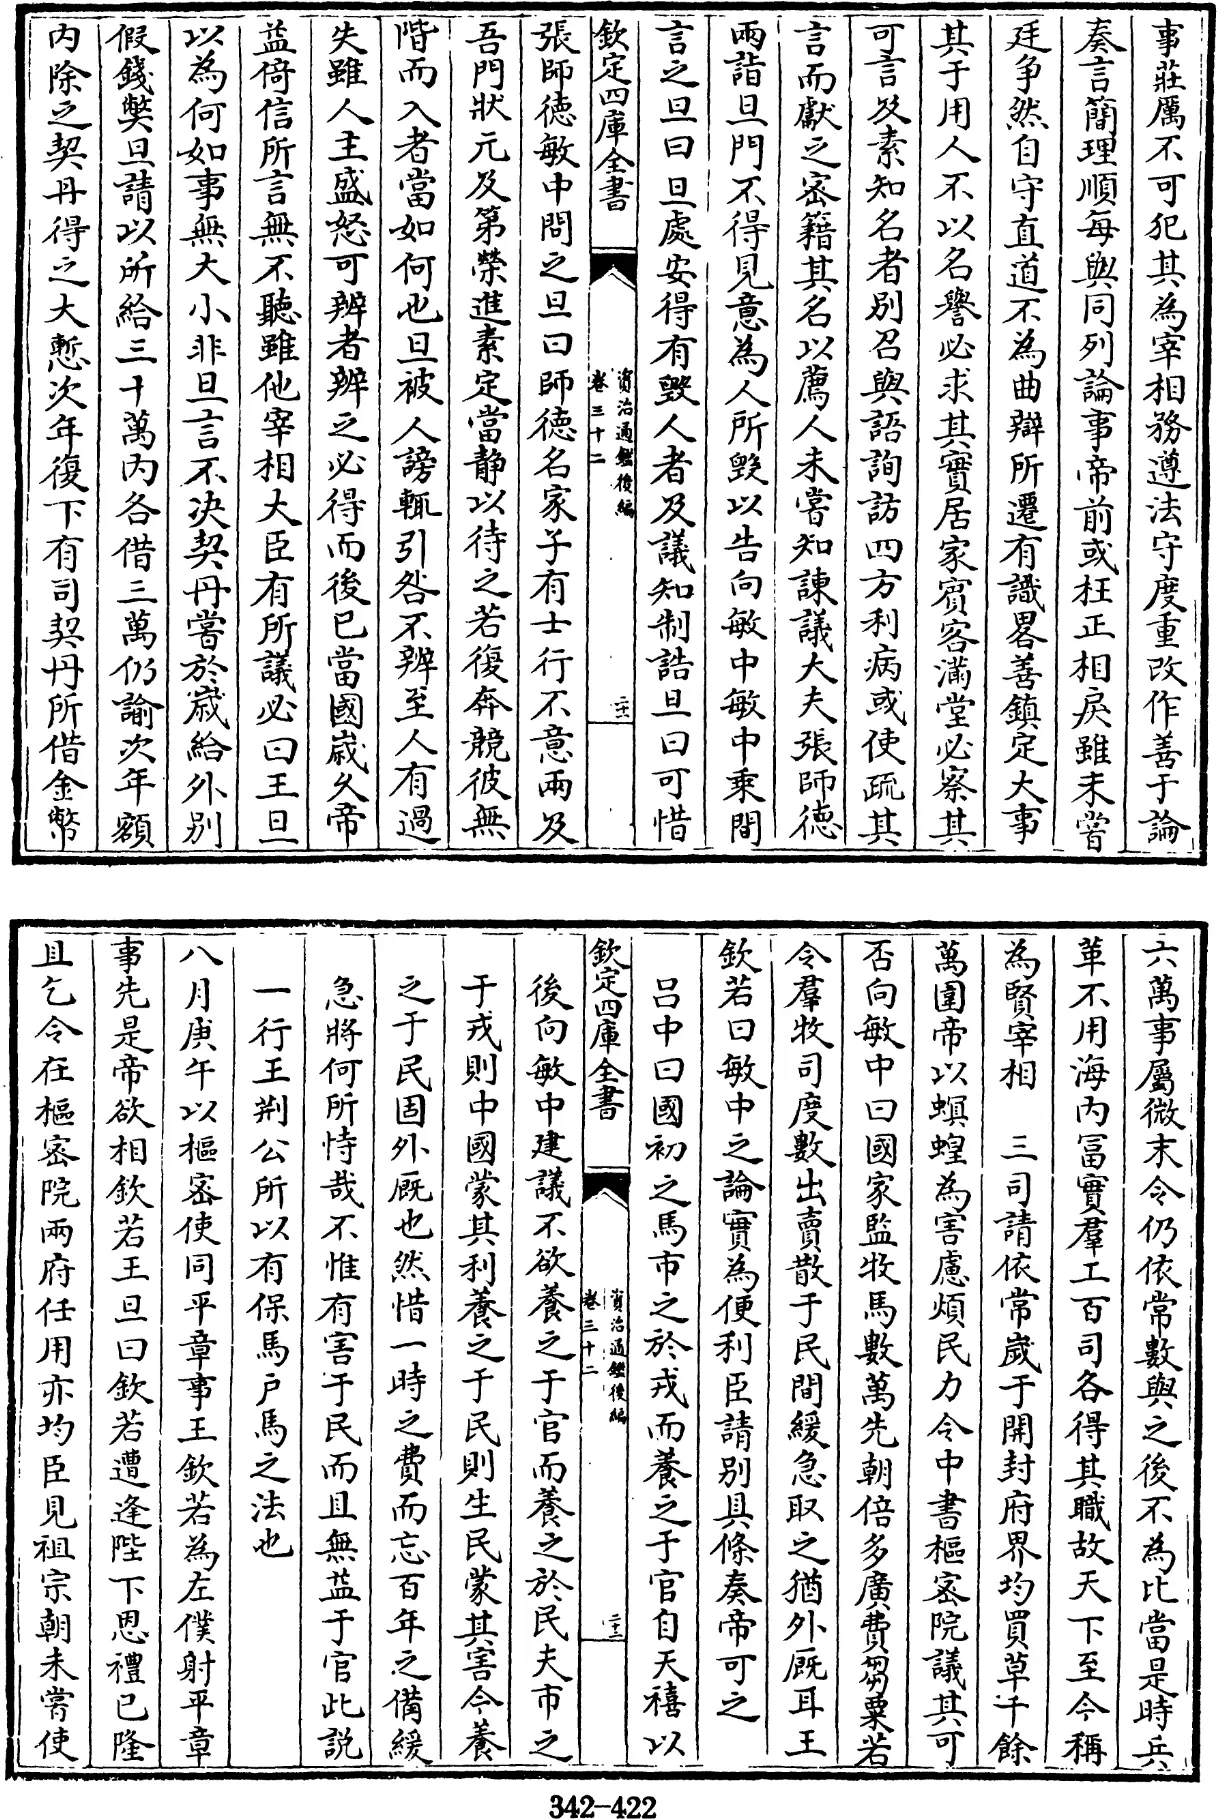 事莊厲不可犯其為宰相務遵法守度重改作善于論
奏言簡理順每與同列論事帝前或枉正相戾雖未嘗
廷爭然自守直道不為曲辯所遷有識畧善鎮定大事
其于用人不以名譽必求其實居家賓客滿堂必察其
可言及素知名者别召與語詢訪四方利病或使疏其
言而獻之密籍其名以薦人未嘗知諫議大夫張師德
兩詣旦門不得見意為人所毁以告向敏中敏中乘間
言之旦曰旦處安得有毁人者及議知制誥旦曰可惜
欽定四庫全書
資治通鑑後編
卷三十二
二十二
張師德敏中問之旦曰師德名家子有士行不意兩及
吾門狀元及第榮進素定當静以待之若復奔競彼無
階而入者當如何也旦被人謗輒引咎不辨至人有過
失雖人主盛怒可辨者辨之必得而後已當國嵗久帝
益倚信所言無不聽雖他宰相大臣有所議必曰王旦
以為何如事無大小非旦言不决契丹嘗於嵗給外别
假錢幣旦請以所給三十萬内各借三萬仍諭次年額
内除之契丹得之大慙次年復下有司契丹所借金幣
六萬事屬微末令仍依常數與之後不為比當是時兵
革不用海内冨實羣工百司各得其職故天下至今稱
為賢宰相　三司請依常歲于開封府界均買草千餘
萬圍帝以螟蝗為害慮煩民力令中書樞密院議其可
否向敏中曰國家監牧馬數萬先朝倍多廣費芻粟若
令羣牧司度數出賣散于民間緩急取之猶外厩耳王
欽若曰敏中之論實為便利臣請别具條奏帝可之
吕中曰國初之馬市之於戎而養之于官自天禧以
欽定四庫全書
資治通鑑後編
卷三十二
二十三
後向敏中建議不欲養之于官而養之於民夫市之
于戎則中國蒙其利養之于民則生民蒙其害今養
之于民固外厩也然惜一時之費而忘百年之備緩
急將何所恃哉不惟有害于民而且無益于官此説
一行王荆公所以有保馬户馬之法也
八月庚午以樞密使同平章事王欽若為左僕射平章
事先是帝欲相欽若王旦曰欽若遭逢陛下恩禮已隆
且乞令在樞密院兩府任用亦均臣見祖宗朝未嘗使
342-422